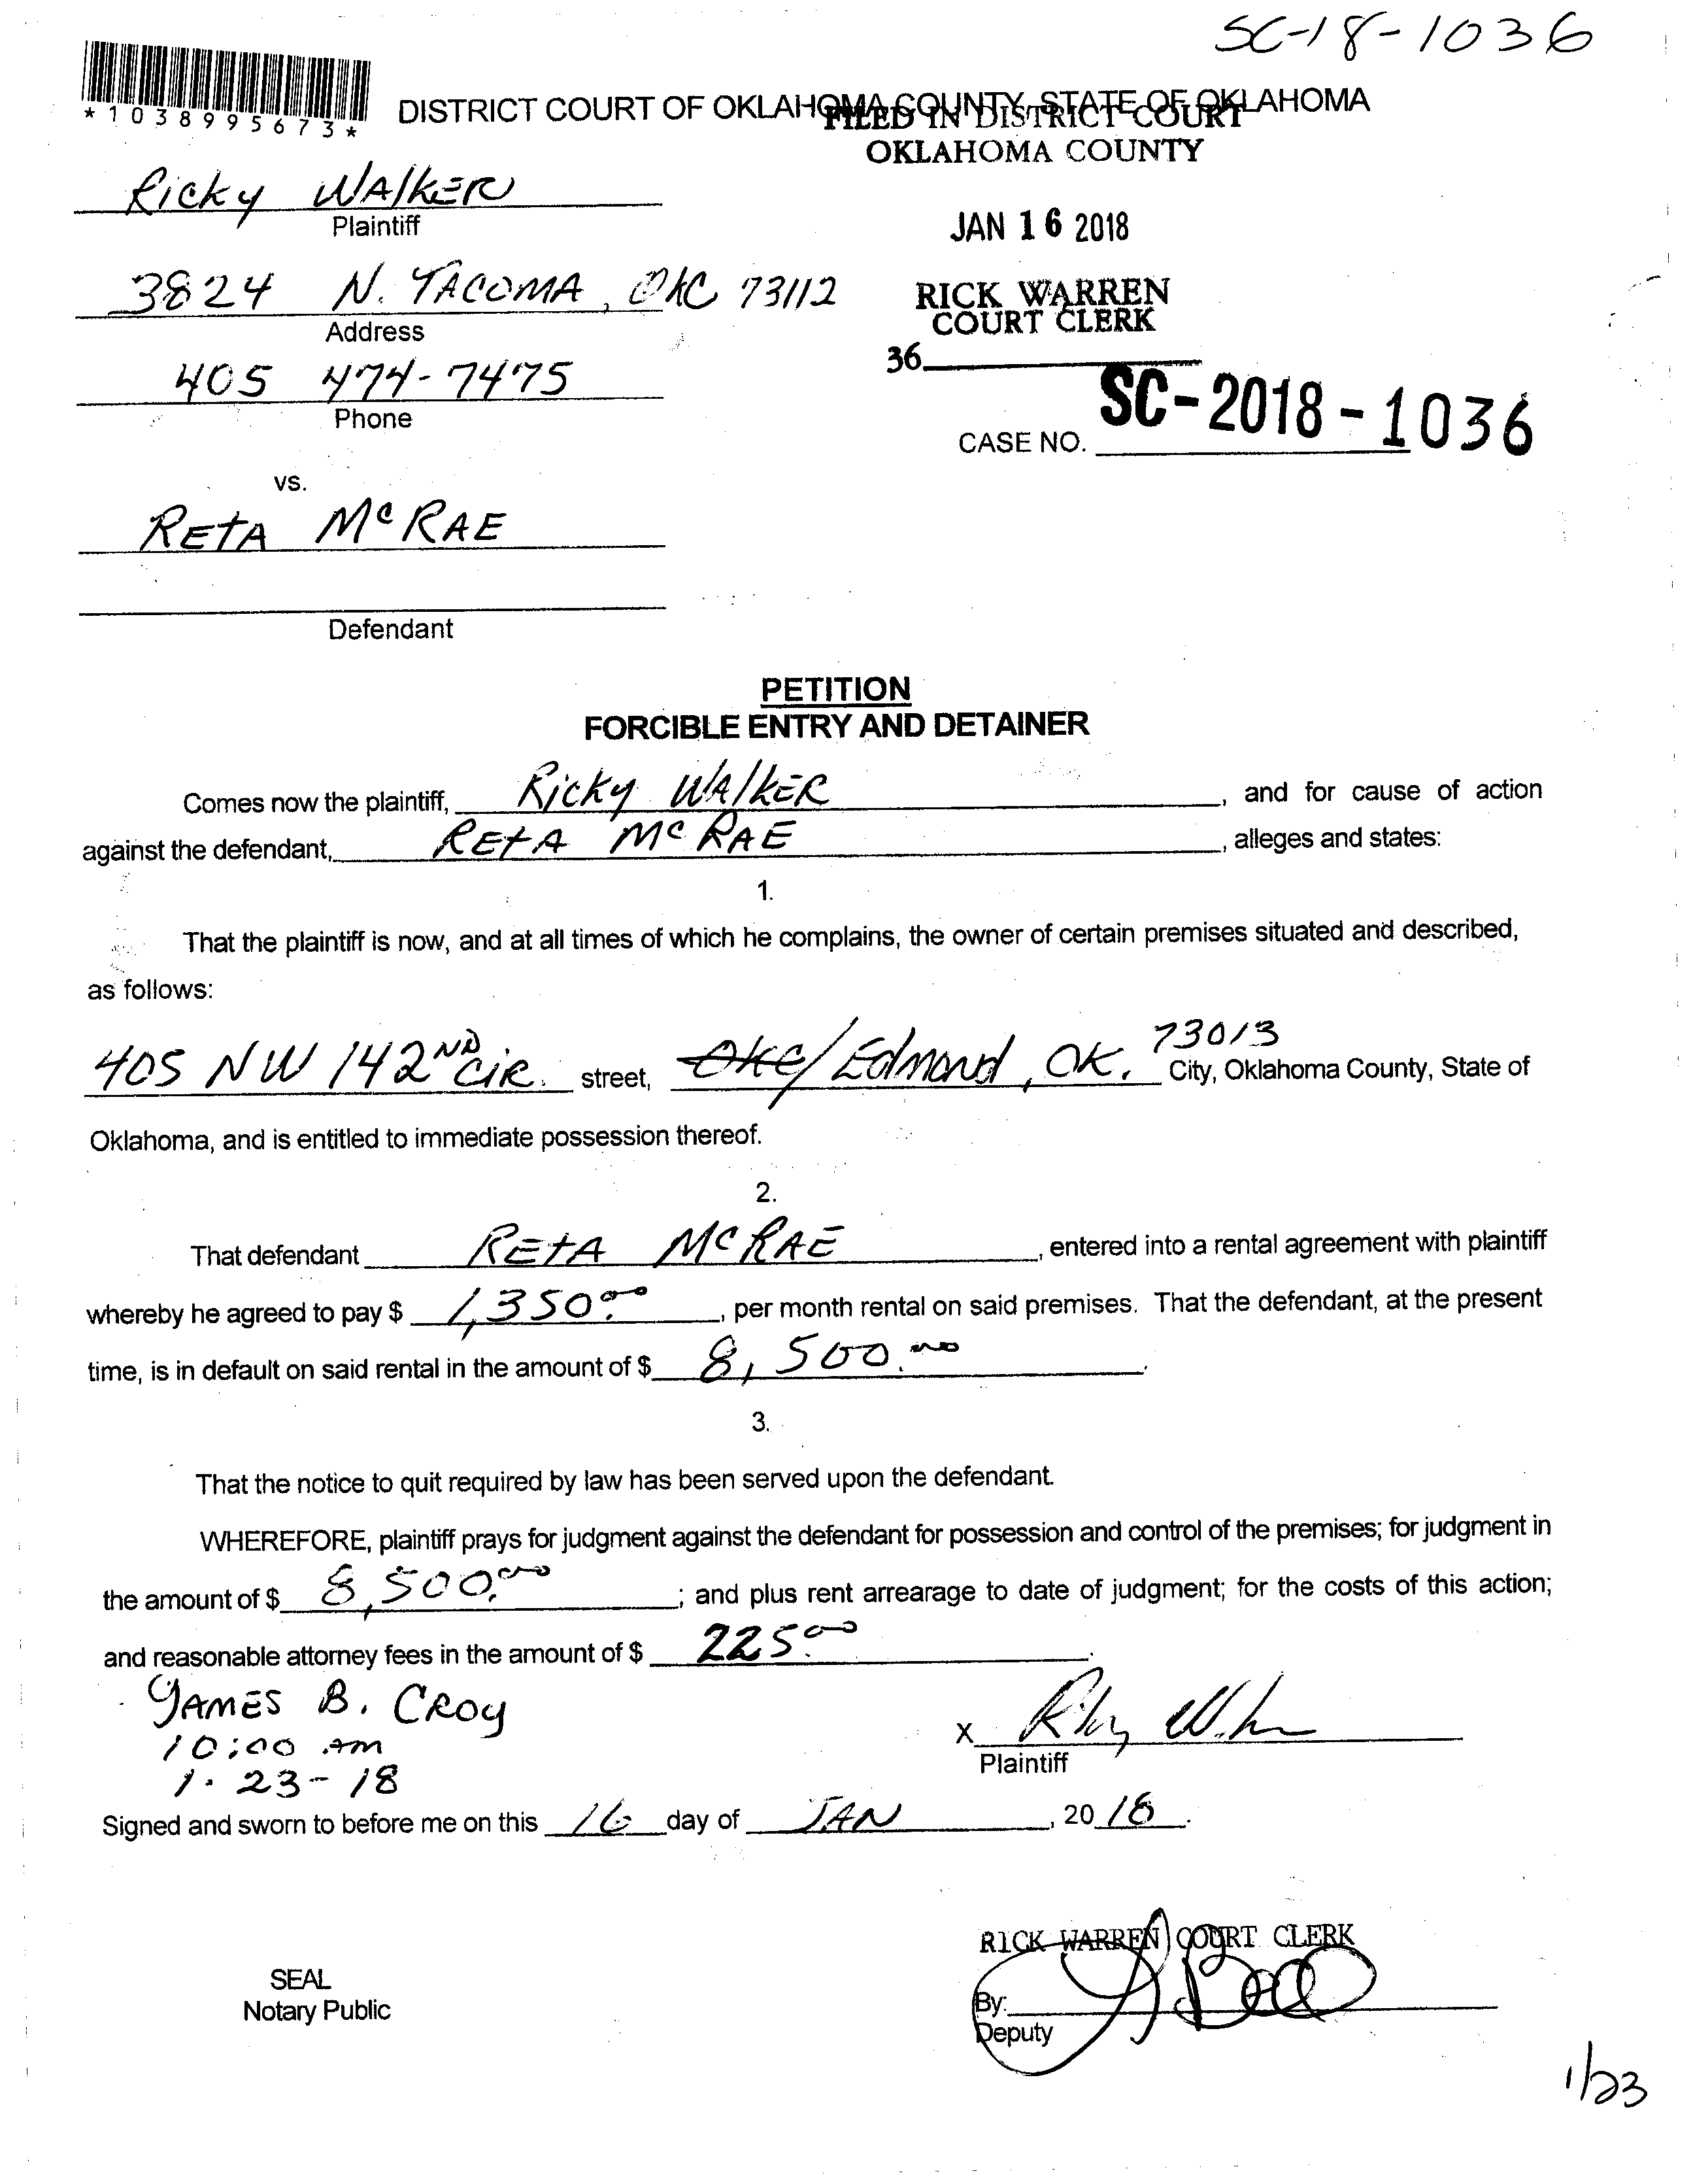 SC-18-1036
*1038995673*
DISTRICT COURT OF OKLAHOMA COUNTY, STATE OF OKLAHOMA
FILED IN DISTRICT COURT
OKLAHOMA COUNTY
Ricky WAlkER
Plaintiff
JAN 16 2018
3824 N. TACOMA, OKC 73112
Address
RICK WARREN
COURT CLERK
405 474-7475
Phone
36
SC-2018-1036
CASE NO.
vs.
REtA McRAE
Defendant
PETITION
FORCIBLE ENTRY AND DETAINER
Comes now the plaintiff, Ricky WAlkER, and for cause of action
against the defendant, REtA McRAE, alleges and states:
1.
That the plaintiff is now, and at all times of which he complains, the owner of certain premises situated and described,
as follows:
405 NW 142ND CiR. street, OKC/Edmond, OK. 73013 City, Oklahoma County, State of
Oklahoma, and is entitled to immediate possession thereof.
2.
That defendant REtA McRAE, entered into a rental agreement with plaintiff
whereby he agreed to pay $ 1,350.00, per month rental on said premises. That the defendant, at the present
time, is in default on said rental in the amount of $ 8,500.00.
3.
That the notice to quit required by law has been served upon the defendant.
WHEREFORE, plaintiff prays for judgment against the defendant for possession and control of the premises; for judgment in
the amount of $ 8,500.00; and plus rent arrearage to date of judgment; for the costs of this action;
and reasonable attorney fees in the amount of $ 225.00.
JAMES B. CROy
10:00 Am
1-23-18
X
Plaintiff
Signed and sworn to before me on this 16 day of JAN, 2018.
RICK WARREN COURT CLERK
SEAL
Notary Public
By:
Deputy
1/23